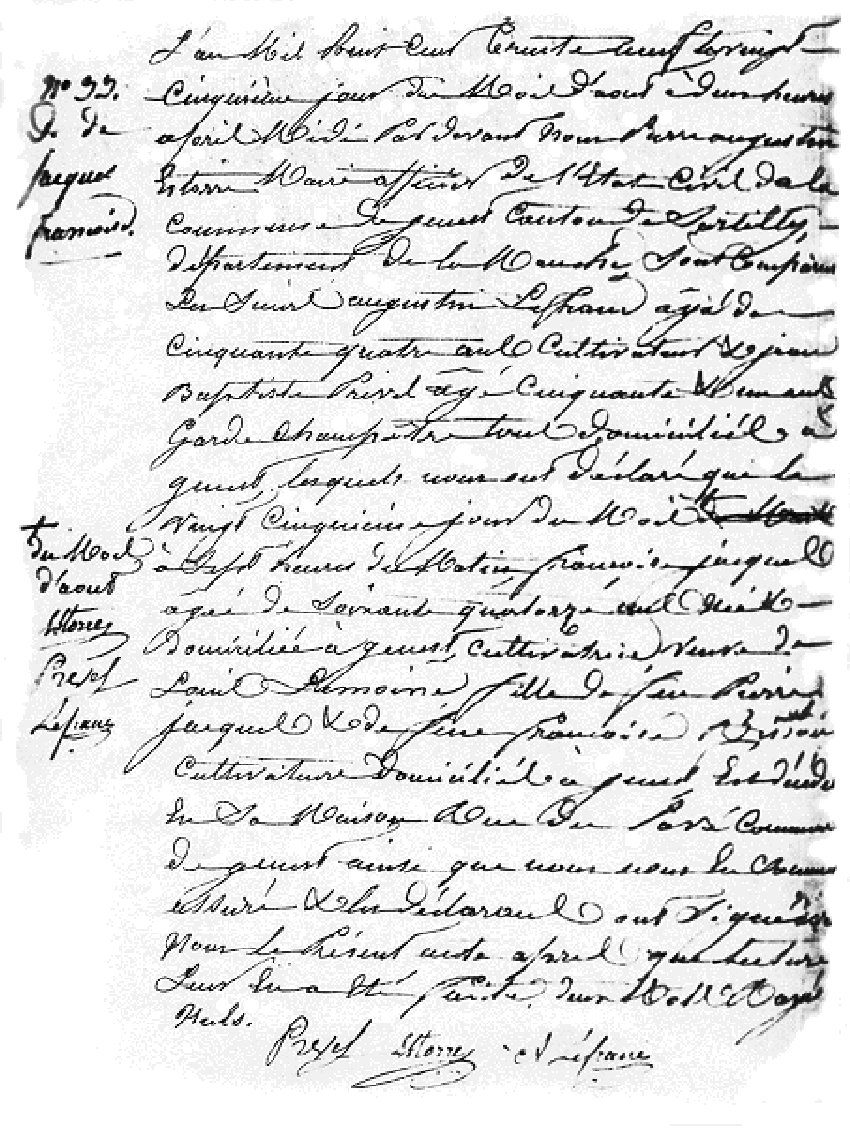 L'an Mil huit cent trente neuf le vingt
Cinquième jour du Mois d'aout à deux heures
après Midi Par devant Nous Pierre augustin
Maire officier De l'Etat Civil de la
Commune de genest Canton de Sartilly,
département de la Manche, Sont Comparus
Les Sieurs augustin Lefranc âgé de
Cinquante quatre ans Cultivateur & jean
Baptiste Prevel âgé Cinquante & un ans
Garde champêtre tous domiciliés à
genest, lesquels nous ont déclaré que le
vingt Cinquième jour du Mois
à Sept heures du Matin françoise jacques
âgée de Soixante quatorze ans Née &
Domiciliée à genest, Cultivatrice Veuve de
Louis Lemoine fille de feu Pierre
jacques & de feue françoise
Cultivateurs Domiciliés à genest Est décédée
En Sa Maison Rue du Pavé Commune
de genest ainsi que nous nous En sommes
assuré & les déclarants ont Signé avec
Nous Le Présent acte après que lecture
Leur En a Eté faite. deux Mots Rayés
Nuls.
Prevel A Lefranc
N° 33.
D. de
jacques
françoise.
du Mois
d'aout
Prevel
Lefranc